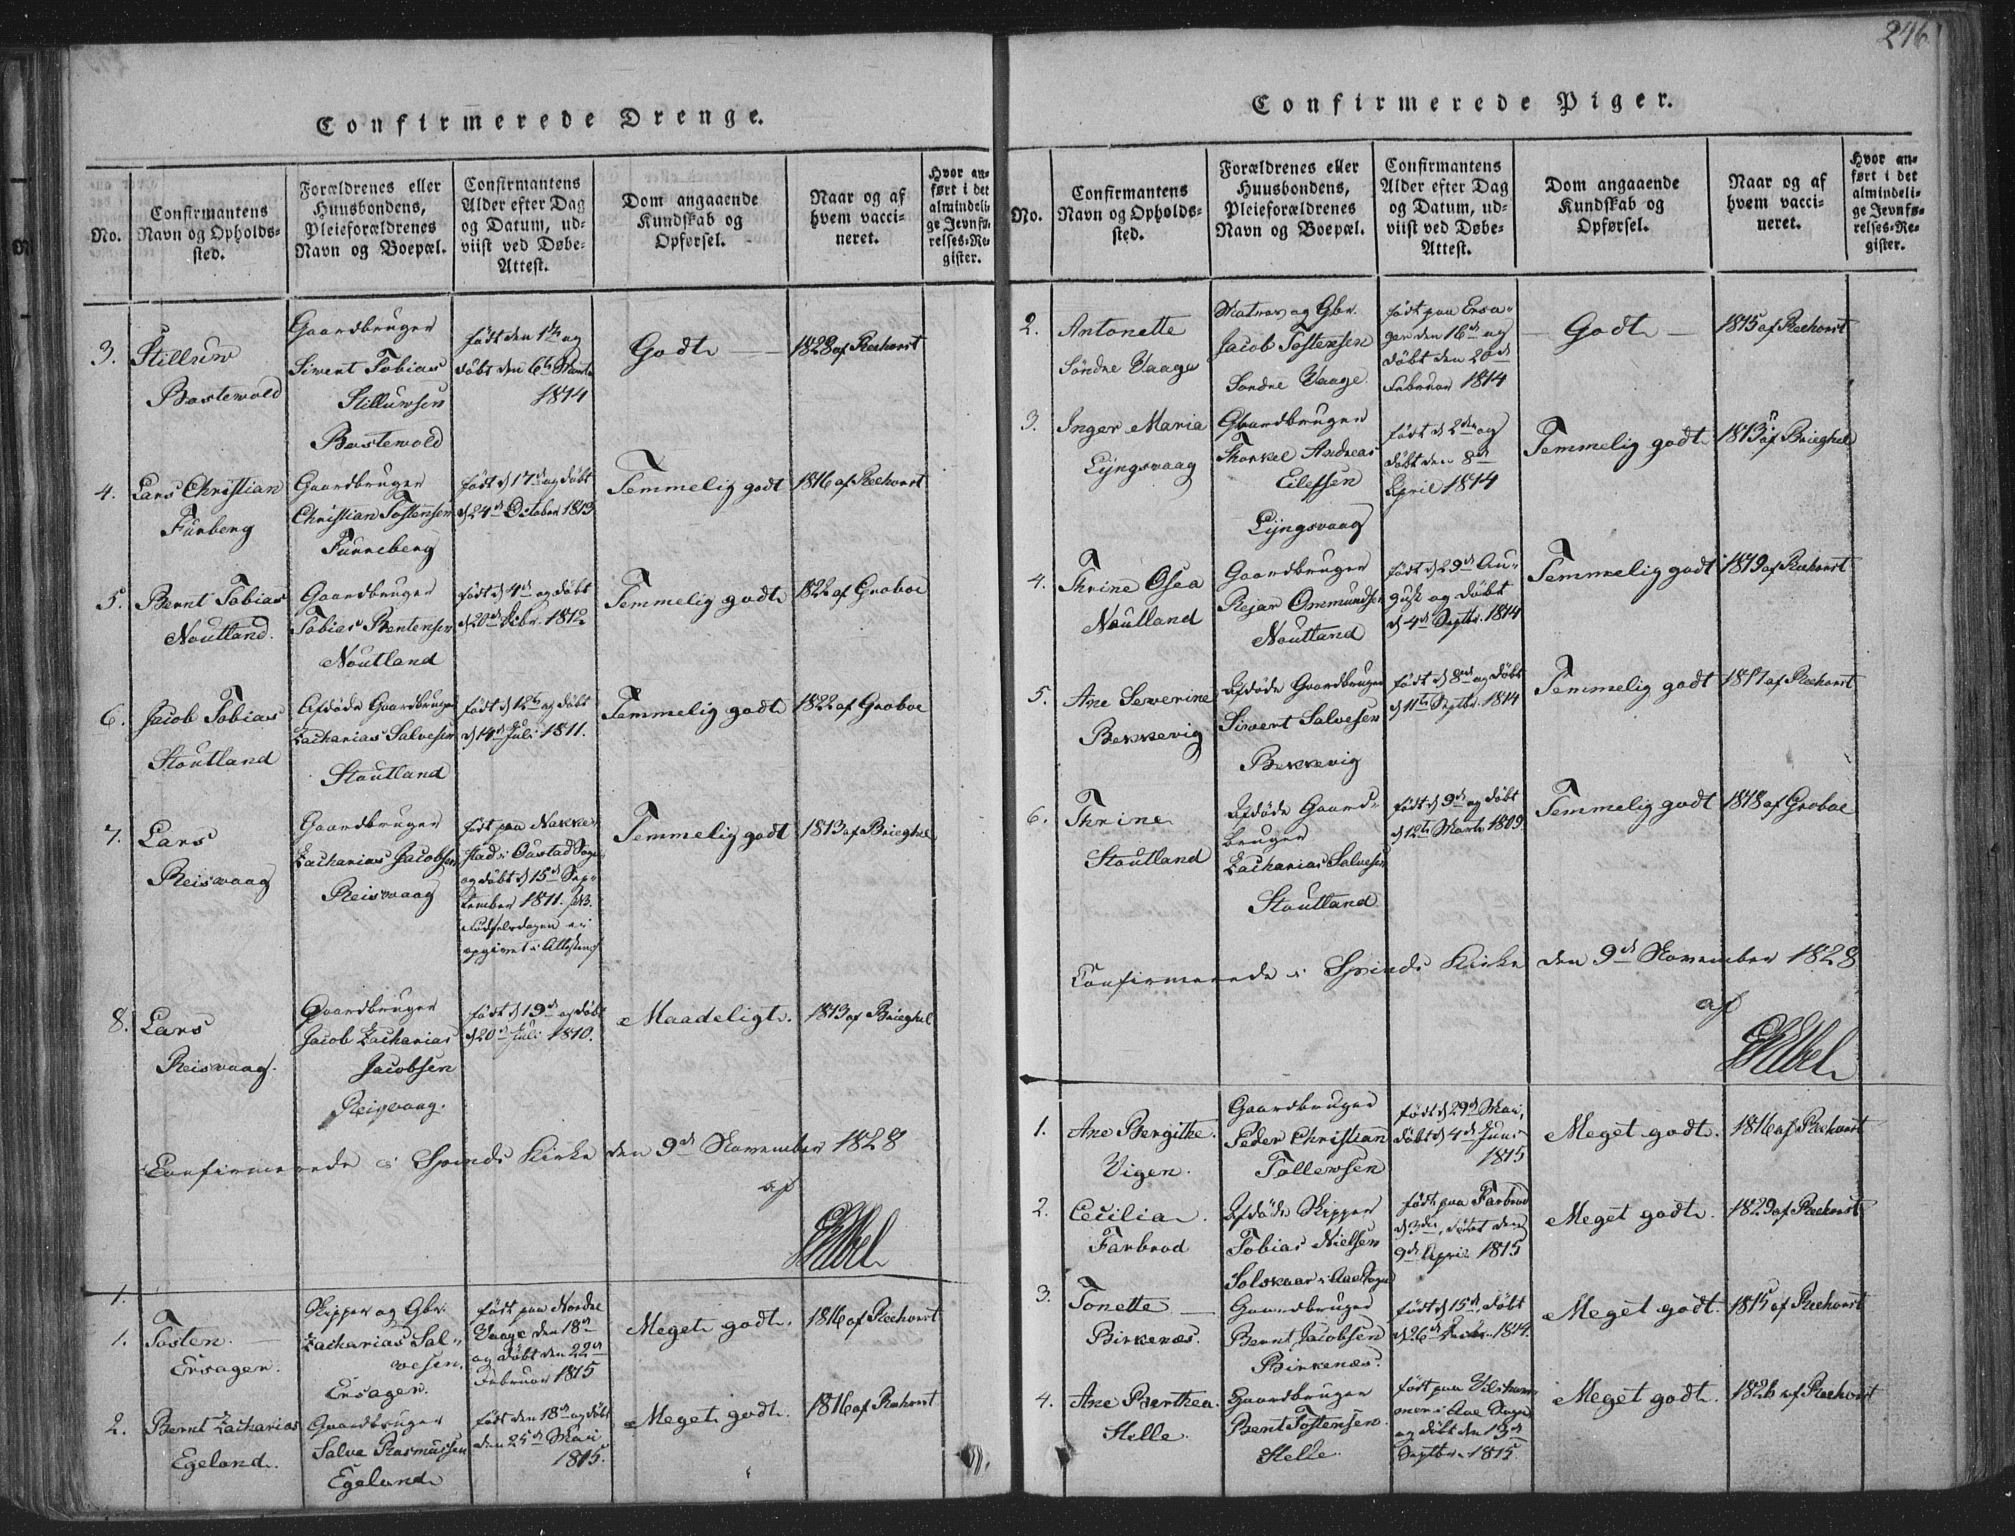 246
Confirmerede Drenge.
No.
Confirmantens
Navn og Opholds-
sted.
Forældrenes eller
Huusbondens,
Pleieforældrenes
Navn og Boepæl.
Confirmantens
Alder efter Dag
og Datum, ud-
viist ved Døbe-
Attest.
Dom angaaende
Kundskab og
Opførsel.
Naar og af
hvem vacci-
neret.
Hvor an-
ført i det
almindeli-
ge Jevnfø-
relses-Re-
gister.
3.
Stilluw
Bastewold
Gaardbruger
Siwert Tobias
Stilluwsen
Bastewold
født den 1te og
døbt den 6te Marts
1814
Godt
1828 af Reehorst
4.
Lars Christian
Furberg
Gaardbruger
Christian Tostensen
Furreberg
født d 17de og døbt
d 24de October 1813
Temmelig godt
1816 af Reehorst
5.
Bernt Tobias
Noutland.
Gaardbruger
Tobias Bentensen
Noutland
født d 4de og døbt
d 20de Decbr. 1812
Temmelig godt
1822 af Groboe
6.
Jacob Tobias
Stoutland
Afdøde Gaardbruger
Zacharias Salvesen
Stoutland
født d 12te og døbt
d 14de Juli 1811.
Temmelig godt
1822 af Groboe
7.
Lars
Reiswaag
Gaardbruger
Zacharias Jacobsen
Reiswaag
født paa Nakke-
stad i Oustad Sogn
og døbt d 15de Sep-
tember 1811. NB.
Fødselsdagen ei
opgivet i Attesten
Temmelig godt
1813 af Brieghel
8.
Lars
Reiswaag.
Gaardbruger
Jacob Zacharias
Jacobsen
Reiswaag.
født d 19de og døbt
d 20de Juli 1810.
Maadeligt.
1813 af Brieghel
Confirmerede i Spinds Kirke den 9de November 1828
af
Abel
1.
1.
Tosten
Ersagen.
Skipper og Gbr.
Zacharias Sal-
wesen.
Ersagen.
født paa Nordre
Vaage den 18de
og døbt den 22de
Februar 1815
Meget godt.
1816 af Reehorst
2.
Bernt Zacharias
Egeland.
Gaardbruger
Salve Rasmussen
Egeland
født den 18de og døbt
den 25de Mai
1815.
Meget godt.
1816 af Reehorst
Confirmerede Piger.
No.
Confirmantens
Navn og Opholds-
sted.
Forældrenes eller
Huusbondens,
Pleieforældrenes
Navn og Boepæl.
Confirmantens
Alder efter Dag
og Datum, ud-
viist ved Døbe-
Attest.
Dom angaaende
Kundskab og
Opførsel.
Naar og af
hvem vacci-
neret.
Hvor an-
ført i det
almindeli-
ge Jevnfø-
relses-Re-
gister.
2.
Antonette
Søndre Vaage
Matros og Gbr.
Jacob Tostensen
Søndre Vaage
født paa Ersa-
gen den 16de og
døbt den 20de
Februar 1814
Godt
1815 af Reehorst
3.
Inger Maria
Lyngsvaag
Gaardbruger
Thorkel Andreas
Eilefsen
Lyngsvaag
født d 2den og
døbt den 8de
April 1814
Temmelig godt
1813 af Brieghel
4.
Thrine Osea
Noutland
Gaardbruger
Rejar Ommundsen
Noutland
født d 29de Au-
gust og døbt
d 4de Septbr. 1814
Temmelig godt
1819 af Reehorst
5.
Ane Severine
Bekkevig
Afdøde Gaardbruger
Siwert Salvesen
Bekkevig
født d 8de og døbt
d 11te Septbr. 1814
Temmelig godt
1817 af Reehorst
6.
Thrine
Stoutland
Afdøde Gaard-
bruger
Zacharias Salvesen
Stoutland
født d 9de og døbt
d 12te Marts 1809.
Temmelig godt
1818 af Groboe
Confirmerede i Spinds Kirke den 9de November 1828
af
Abel
1.
Ane Bergithe.
Vigen.
Gaardbruger
Peder Christian
Tollewsen
født d 29de Mai,
døbt d 4de Juni
1815
Meget godt.
1816 af Reehorst
2.
Cecilia
Farbrod
Afdøde Skipper
Tobias Nielsen
Solskaar i Aae Sogn
født paa Farbrod
d 3die, døbt den
9de April 1815
Meget godt.
1829 af Reehorst
3.
Tonette
Birkenæs.
Gaardbruger
Bernt Jacobsen
Birkenæs.
født d 15de, døbt
d 26de Decbr. 1814.
Meget godt.
1815 af Reehorst
4.
Ane Berthea
Helle.
Gaardbruger
Bent Tostensen.
Helle.
født paa
i Aae Sogn
og døbt den 13de
Septbr. 1815.
Meget godt.
1826 af Reehorst